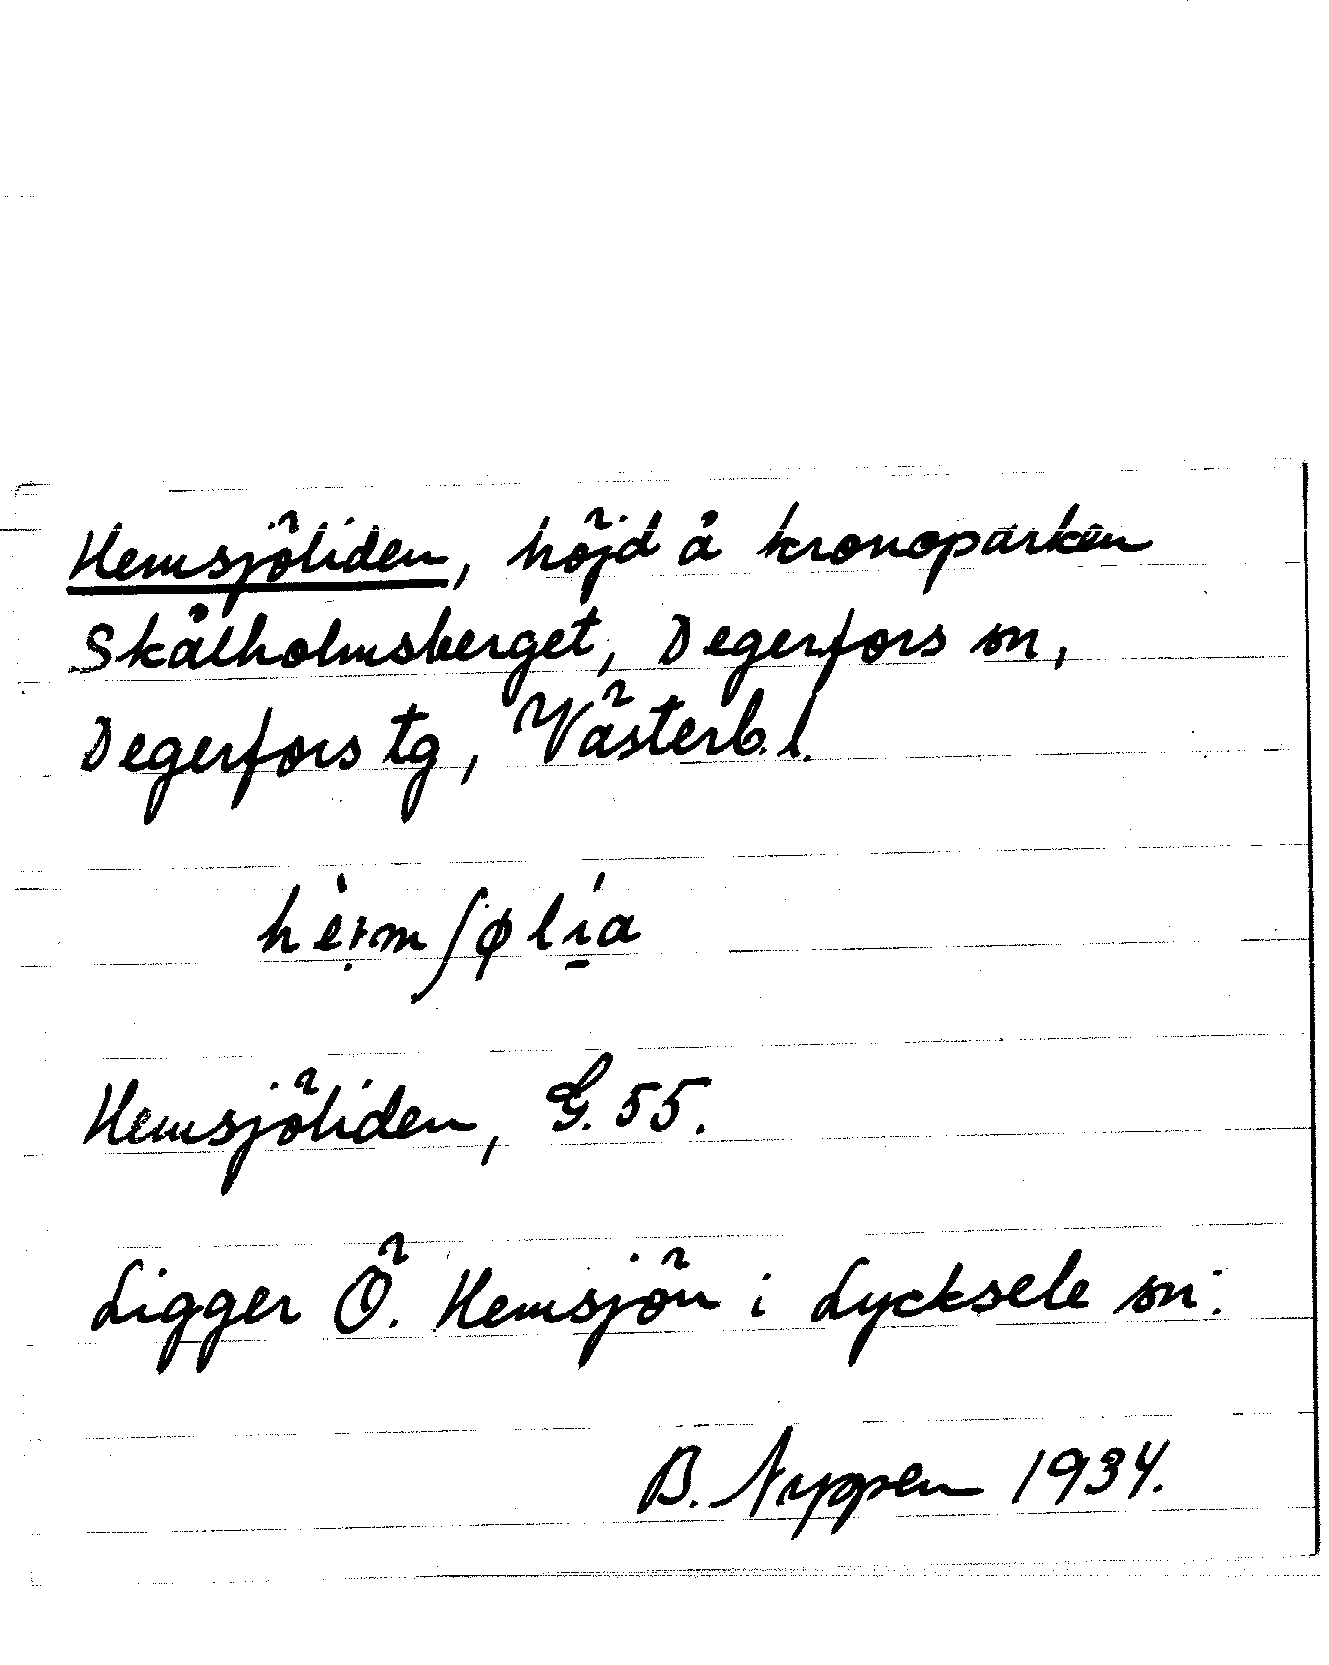 Hemsjöliden, höjd å kronoparken
Skålholmsberget, Degerfors sn,
Degerfors tg, Västerb. l.
Hemsjöliden, G. 55.
Ligger Ö. Hemsjön i Lycksele sn.
B. Nyppen 1934.